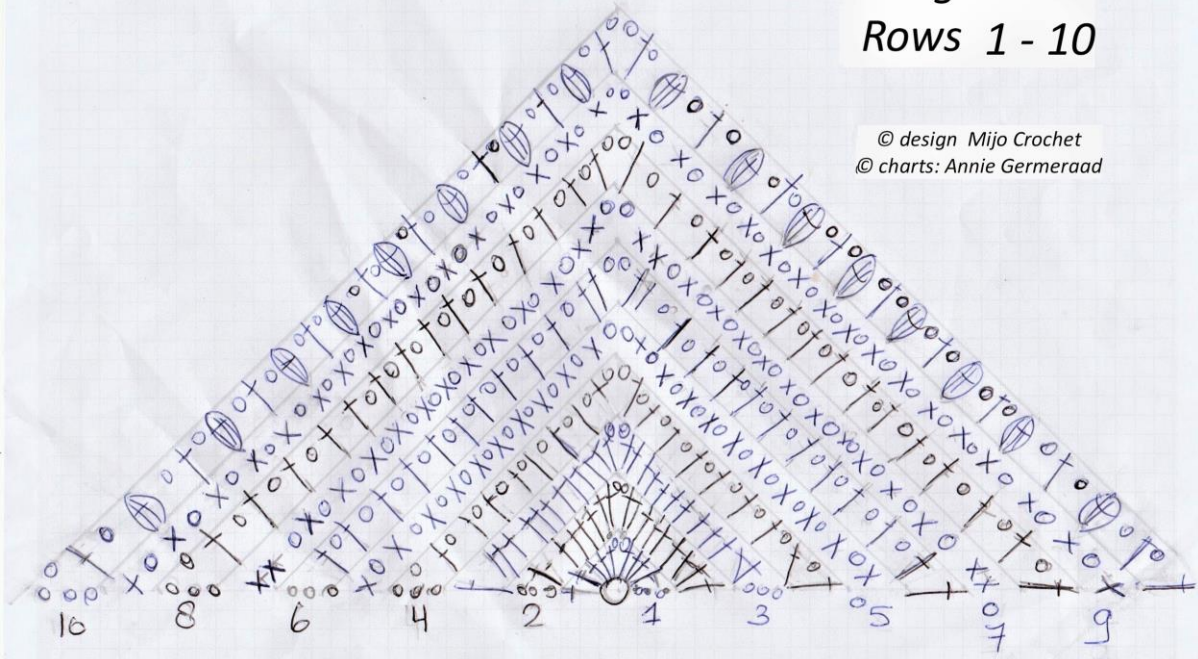 Rows 1 - 10
© design Mijo Crochet
© charts: Annie Germeraad
10 8 6 4 2 1 3 5 7 9